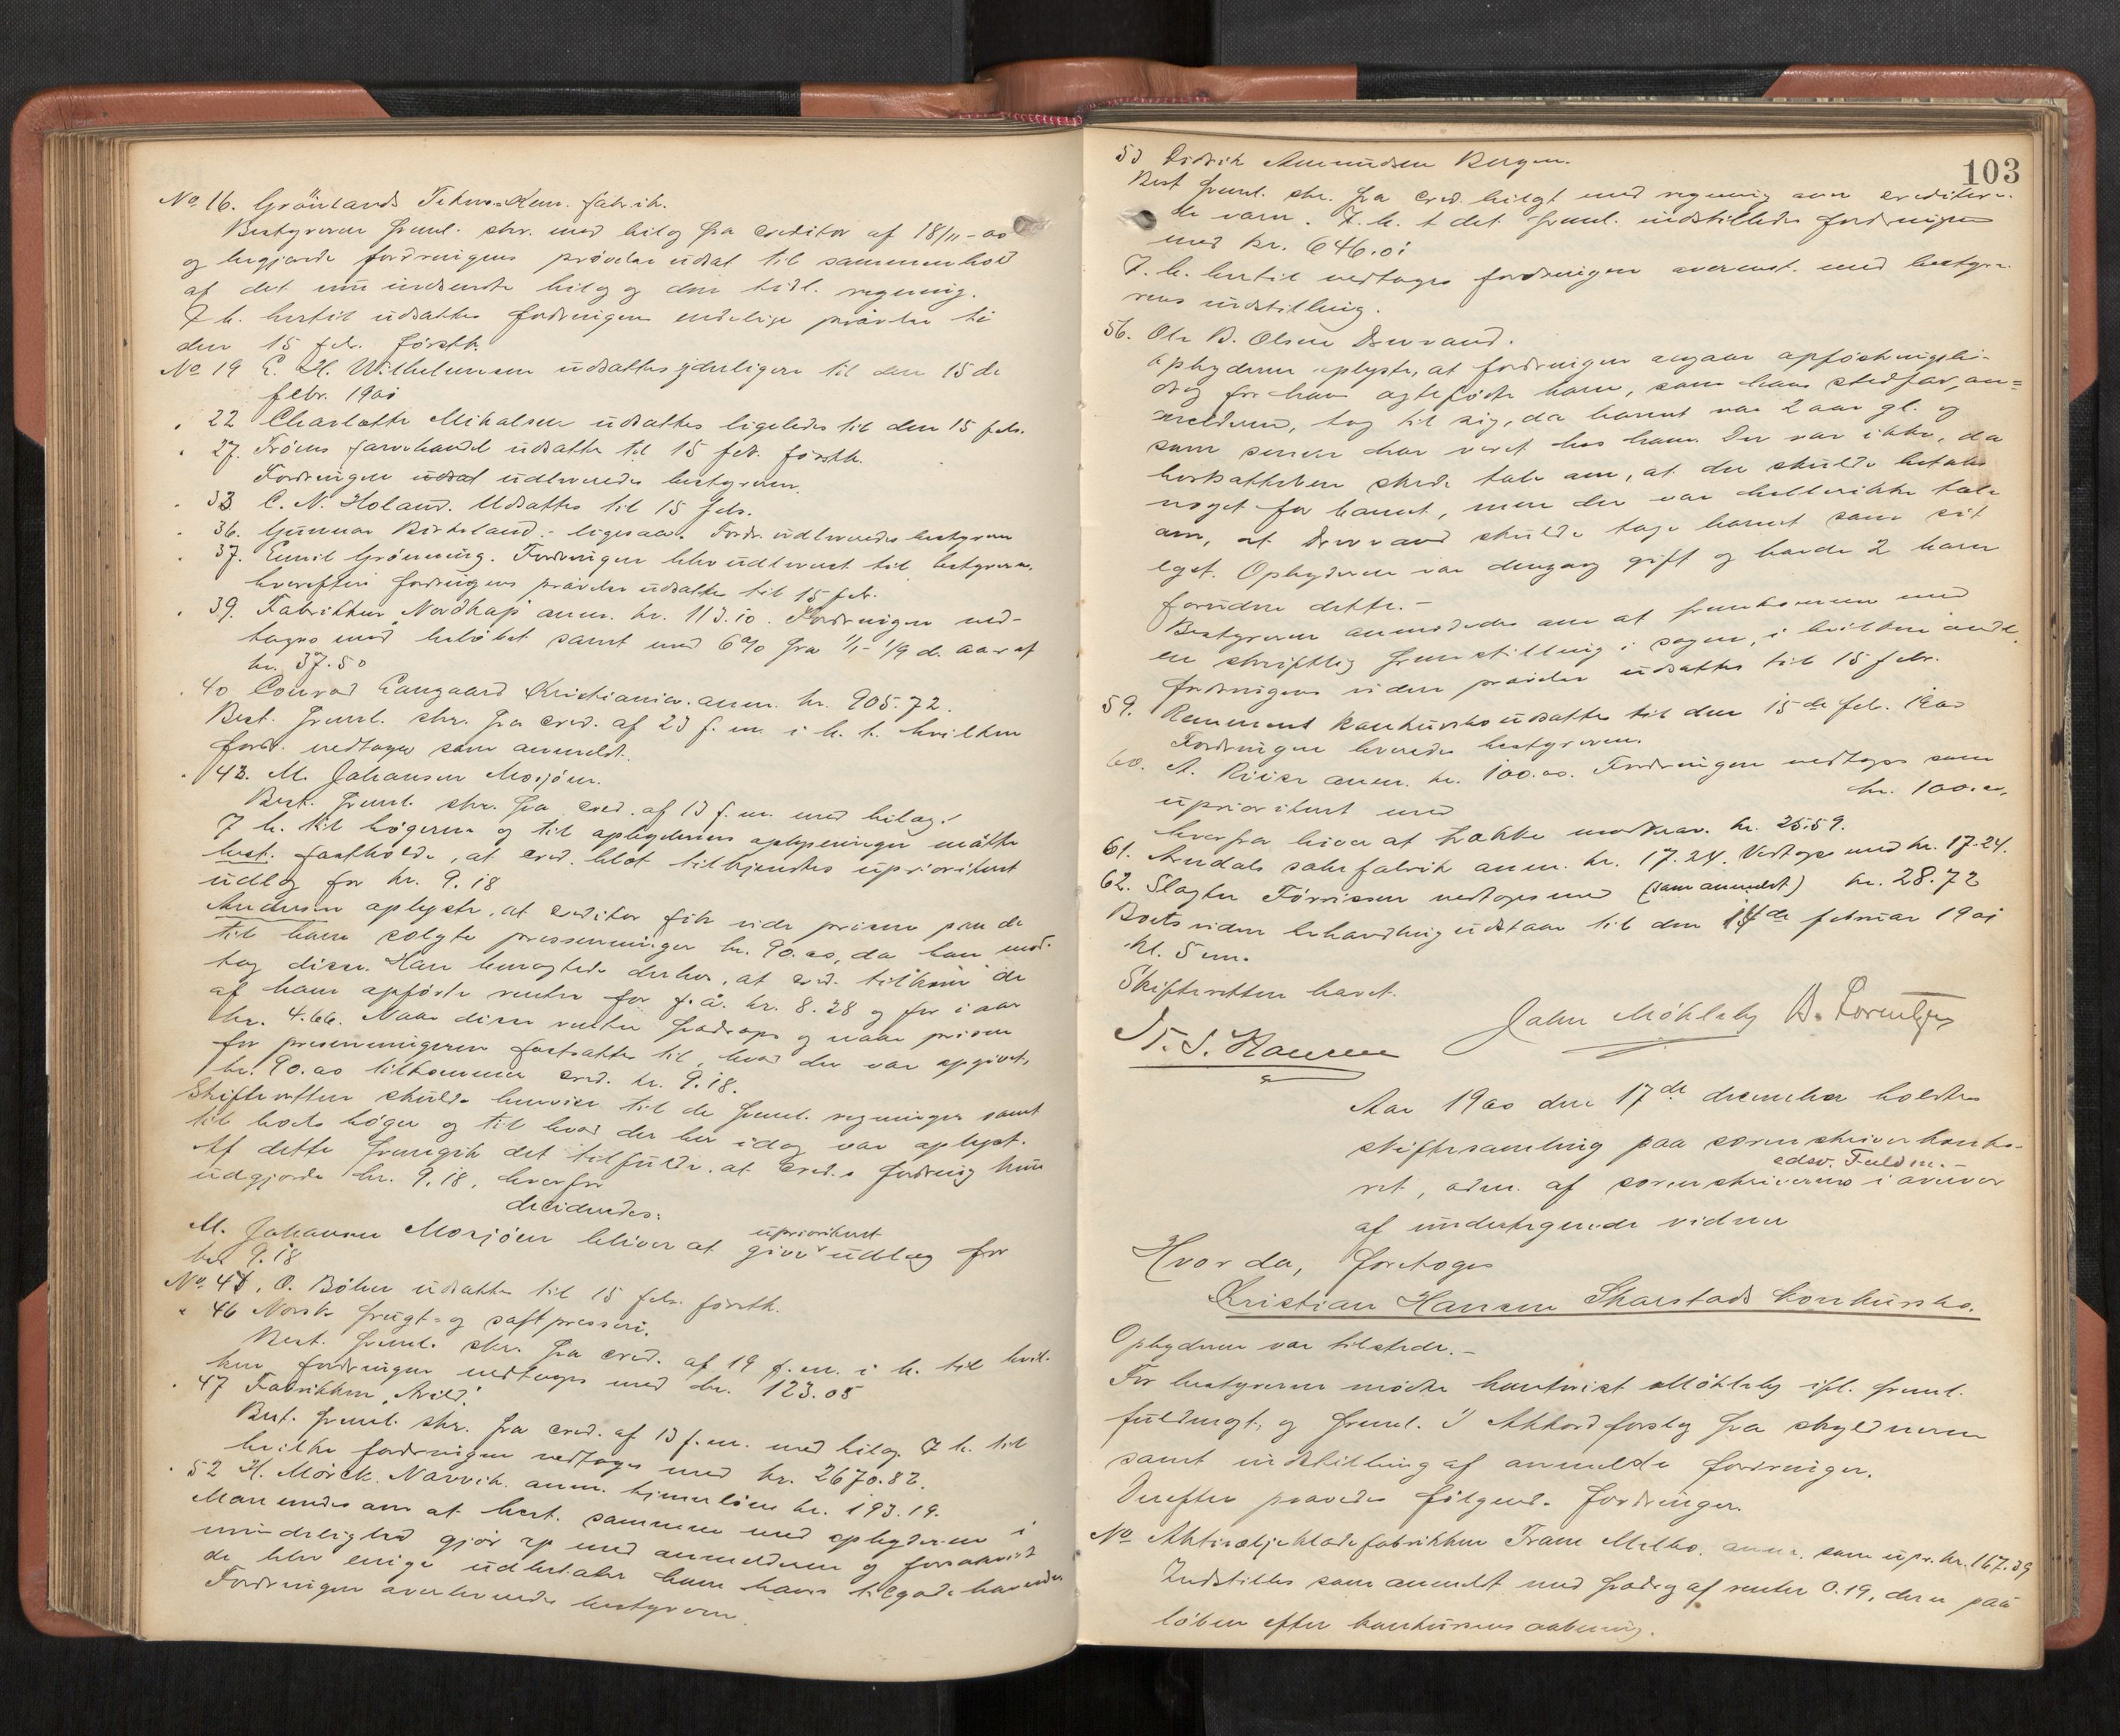 No 16. Grönlands Tekno-Kem. fabrik.
Bestyreren freml. skr. med bilag fra creditor af 18/11-00
og begjærede fordringens prøvelse udsat til sammenhold
af det nu indsendte bilag og den tidl. regning.
I h. hertil udsattes fordringens endelige prøvelse til
den 15 febr. førstk.
No 19 E. H. Wilhelmsen udsattes yderligere til den 15de
febr. 1901
" 22 Charlotte Mikalsen udsattes ligeledes til den 15 febr.
" 27. Trøens farvehandel udsattes til 15 feb. førstk.
Fordringen udsat udleveredes bestyreren.
" 33 C. N. Holand. Udsattes til 15 febr.
" 36. Gunnar Birkeland.- ligesaa. Fordr. udleveredes bestyreren
" 37. Emil Grönning. Fordringen blev udleveret til bestyreren,
hvorefter fordringens prøvelse udsattes til 15 feb.
" 39. Fabrikken "Nordkap" anm. kr. 113.10. Fordringen ved-
toges med beløbet samt med 6% fra 1/1-1/9 d. aar af
kr. 37.50
" 40 Conrad Langaard Kristiania. anm. kr. 905.72.
Best. freml. skr. fra cred. af 23 f. m. i h. t. hvilken
fordr. vedtoges som anmeldt.
" 43. M. Johansen Mosjöen.
Best. freml. skr. fra cred. af 13 f. m. med bilag.
I h. til bøgerne og til opbyderens oplysninger måtte
best. fastholde, at cred. blot tilkjendtes uprioritert
udlæg for kr. 9.18
Andersen oplyste, at creditor fik vide prisen paa de
til ham solgte pressenninger kr. 90.00, da han mod-
tog disse. Han benægtede derhos, at cred. tilkom de
af ham opførte renter for f. å. kr. 8.28 og for i aar
kr. 4.66. Naar disse renter fradrages og naar prisen
for presenningerne fastsattes til, hvad der var opgivet,
kr. 90.00 tilkommer cred. kr. 9.18.
Skifteretten skulde henvise til de freml. regninger samt
til boets bøger og til hvad der her idag var oplyst.
Af dette fremgik det tilfulde, at cred.s fordring kun
udgjorde kr. 9.18, hvorfor
decideredes:
M. Johansen Mosjöen bliver at give uprioritert udlæg for
kr 9.18
No. 44. O. Böhn udsattes til 15 febr. førstk.
" 46 Norsk frugt- og saftpresseri.
Best. freml. skr. fra cred. af 19 f. m. i h. til hvil-
ken fordringen vedtoges med kr. 123.05
" 47 Fabrikken "Arild".
Best. freml. skr. fra cred. af 13 f. m. med bilag. I h. til
hvilke fordringen vedtoges med kr. 2670.82.
" 52 H. Mörck. Narvik. anm. hjemlöse kr. 193.19.
Man enedes om at best. sammen med opbyderen i
mindelighed gjör op med anmelderen og forsaavidt
de blev enige udbetaler ham hans tilgodehavende
Fordringen overleveredes bestyreren.
103
53 Didrik Amundsen Bergen.
Best freml. skr. fra cred. bilagt med regning over crediter-
de varer. I. h. t det freml. indstilledes fordringen
med kr. 646.01
I. h. hertil vedtoges fordringen overenst. med bestyre-
rens indstilling.
56. Ole B. Olsen Drevvand.
Opbyderen oplyste, at fordringen angaar opfostringsbi-
drag for hans ægtefødte barn, som hans stedfar, an-
melderen, tog til sig, da barnet var 2 aar gl. og
som senere har været hos ham. Der var ikke, da
bortsættelsen skede tale om, at der skulde betales
noget for barnet, men der var hellerikke tale
om, at Drevvand skulde tage barnet som sit
eget. Opbyderen var dengang gift og havde 2 barn
foruden dette.-
Bestyreren anmodedes om at fremkomme med
en skriftlig fremstilling i sagen, i hvilken anled.
fordringens videre prøvelse udsattes til 15 febr.
59. konkursbo udsattes til den 15de feb. 1900
Fordringen leveredes bestyreren.
60. A. Riise anm. kr. 100.00. Fordringen vedtoges som
uprioritert med kr. 100.00,
hvorfra bliver at trække modkrav. kr. 25.59.
61. Arndals sæbefabrik anm. kr. 17.24. Vedtoges med kr. 17.24.
62. Slagter Törrissen vedtoges med (som anmeldt) kr. 28.72
Boets videre behandling udstaar til den 14de februar 1901
kl. 5 em.
Skifteretten hævet.
John Möhleby B. Lorentzen
N. S. Hansen
Aar 1900 den 17de december holdtes
skiftesamling paa sorenskriverkonto-
ret, adm. af sorenskriverens edsv. Fuldm.- i overvær
af undertegnede vidner
Hvor da, foretoges
Kristian Hansen Skarstads konkursbo.
Opbyderen var tilstede.-
For bestyreren mødte kontorist Möhleby ifl. freml.
fuldmagt, og freml. 1) Akkordforslag fra skyldneren
samt indstilling af anmeldte fordringer.
Derefter prøvedes følgende fordringer.
No Aktieoljeklædefabrikken Fram Melbo. anm. som upr. kr. 167.39
Indstilles som anmeldt med fradrag af renter 0.19, der er paa
løbne efter konkursens aabning.